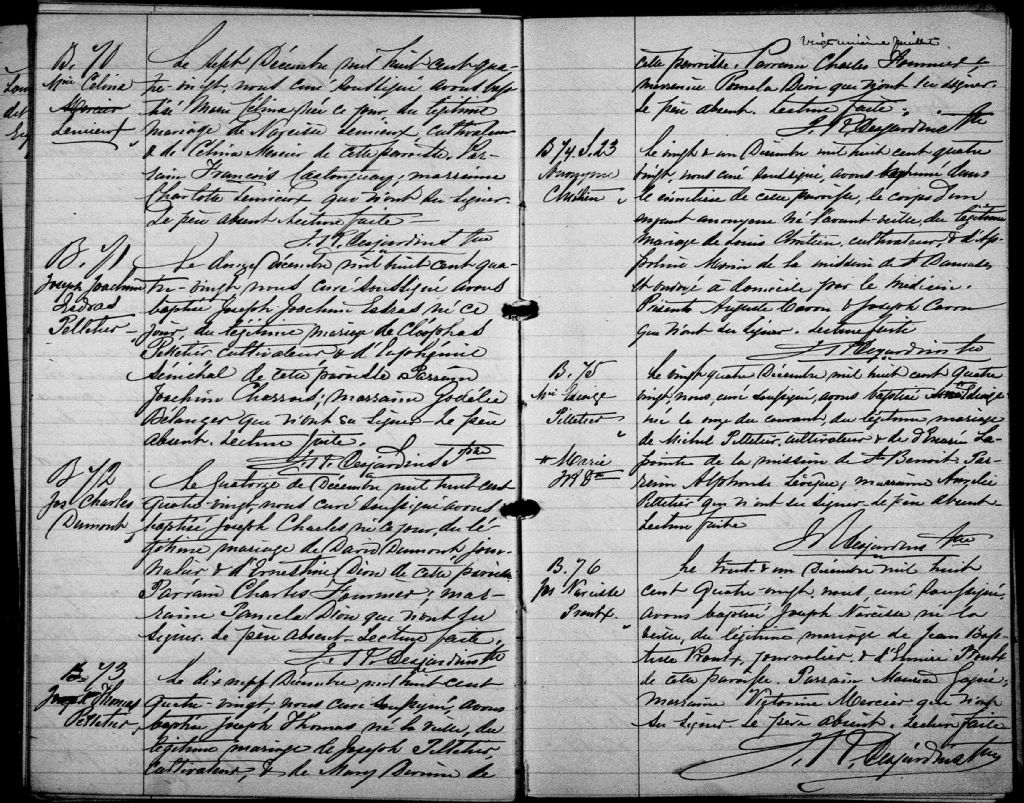 B. 70
Mrie Célina
Mercier
Lemieux
Le sept Décembre mil huit cent qua-
tre-vingt, nous curé soussigné avons bap-
tisé Marie Célina, née ce jour du légitime
mariage de Narcisse Lemieux, cultivateur
& de Célina Mercier de cette paroisse. Par-
rain François Castonguay; marraine
Charlotte Lemieux qui n'ont su signer.
Le père absent. Lecture faite.
J. P. Desjardins Ptre
B. 71
Joseph Joachim
Esdras
Pelletier
Le douze Décembre mil huit cent qua-
tre-vingt nous curé soussigné avons
baptisé Joseph Joachim Esdras né ce
jour, du légitime mariage de Cléophas
Pelletier cultivateur & d'
Sénéchal de cette paroisse Parrain
Joachim marraine Godélie
Bélanger qui n'ont su signer. Le père
absent. Lecture faite.
J. P. Desjardins Ptre
B 72
Jos Charles
Dumont
Le quatorze de Décembre mil huit cent
quatre-vingt, nous curé soussigné avons
baptisé Joseph Charles né ce jour, du lé-
gitime mariage de David Dumont, jour-
nalier & d'Ernestine Dion de cette paroisse
Parrain Charles Fournier; mar-
raine Pamela Dion qui n'ont su
signer. Le père absent. Lecture faite.
J. P. Desjardins Ptre
B. 73
Joseph Thomas
Pelletier
Le dix sept Décembre mil huit cent
quatre-vingt, nous curé soussigné, avons
baptisé Joseph Thomas né la veille, du
légitime mariage de Joseph Pelletier,
cultivateur, & de Mary de
vingt unième feuillet
cette paroisse. Parrain Charles Fournier &
marraine Pamela Dion qui n'ont su signer.
Le père absent. Lecture faite.
J. P. Desjardins Ptre
B 74 S. 23
Anonyme
Chrétien
Le vingt & un Décembre mil huit cent quatre
vingt, nous curé soussigné, avons inhumé dans
le cimetière de cette paroisse, le corps d'un
enfant anonyme né l'avant-veille, du légitime
mariage de Louis Chrétien, cultivateur, & d'Ap-
poline Morin de la mission de St Damase
et ondoyé à domicile par le médecin.
Présents Auguste Caron & Joseph Caron
qui n'ont su signer. Lecture faite
J. P. Desjardins Ptre
B. 75
Mrie
Pelletier
Marie
Le vingt quatre Décembre mil huit cent quatre
vingt, nous, curé soussigné, avons baptisé
née le onze du courant, du légitime mariage
de Michel Pelletier, cultivateur & de La-
pointe de la mission de St Benoit. Par-
rain Alphonse Lévesque; marraine Aurélie
Pelletier qui n'ont su signer. Le père absent.
Lecture faite
J. P. Desjardins Ptre
B. 76
Jos Narcisse
Proulx
Le trent & un Décembre mil huit
cent quatre vingt, nous, curé soussigné,
avons baptisé Joseph Narcisse né la
veille, du légitime mariage de Jean Bap-
tiste Proulx, journalier, & d' Proulx
de cette paroisse. Parrain Maurice Gagné;
marraine Victorine Mercier qui n'ont
su signer. Le père absent. Lecture faite
J. P. Desjardins Ptre